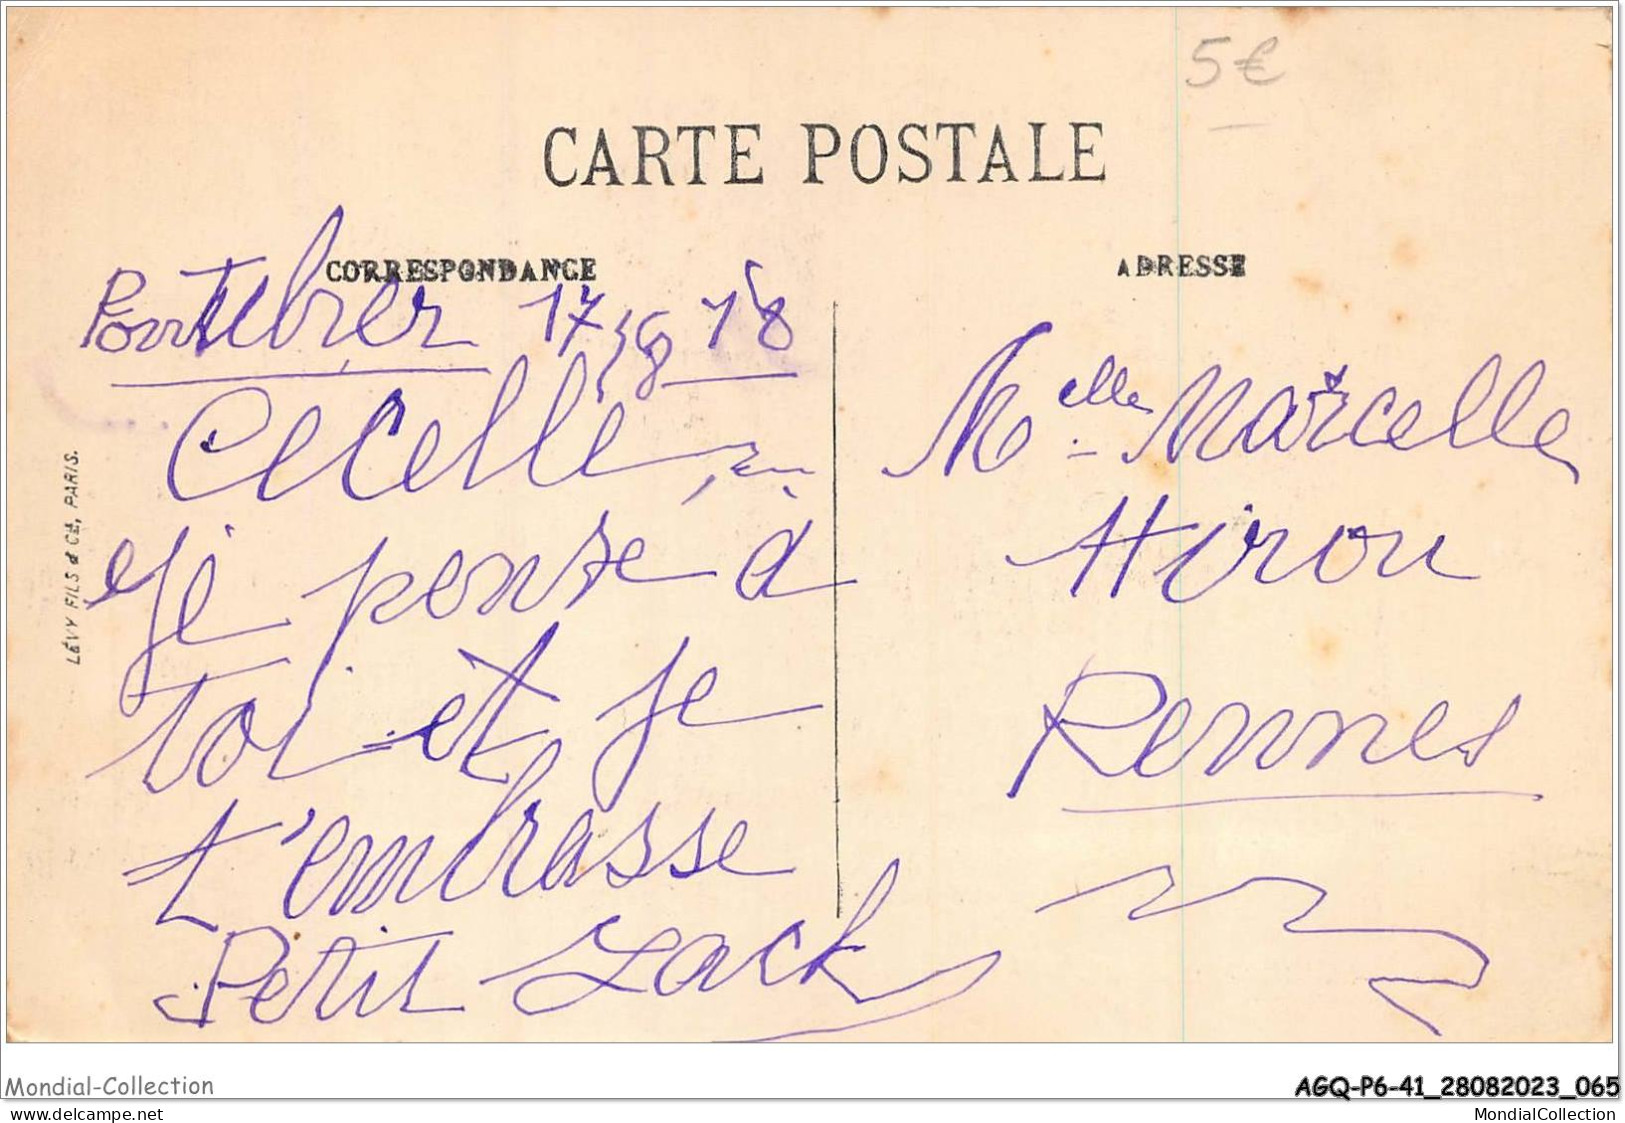 5€
CARTE POSTALE
CORRESPONDANCE
ADRESSE
17 18
Cecelle
je pense à
toi et je
t'embrasse
Petit Jack
Melle Marcelle
Hirou
Rennes
LÉVY FILS & Cie, PARIS.
Mondial-Collection
AGQ-P6-41_28082023_065
www.delcampe.net
MondialCollection